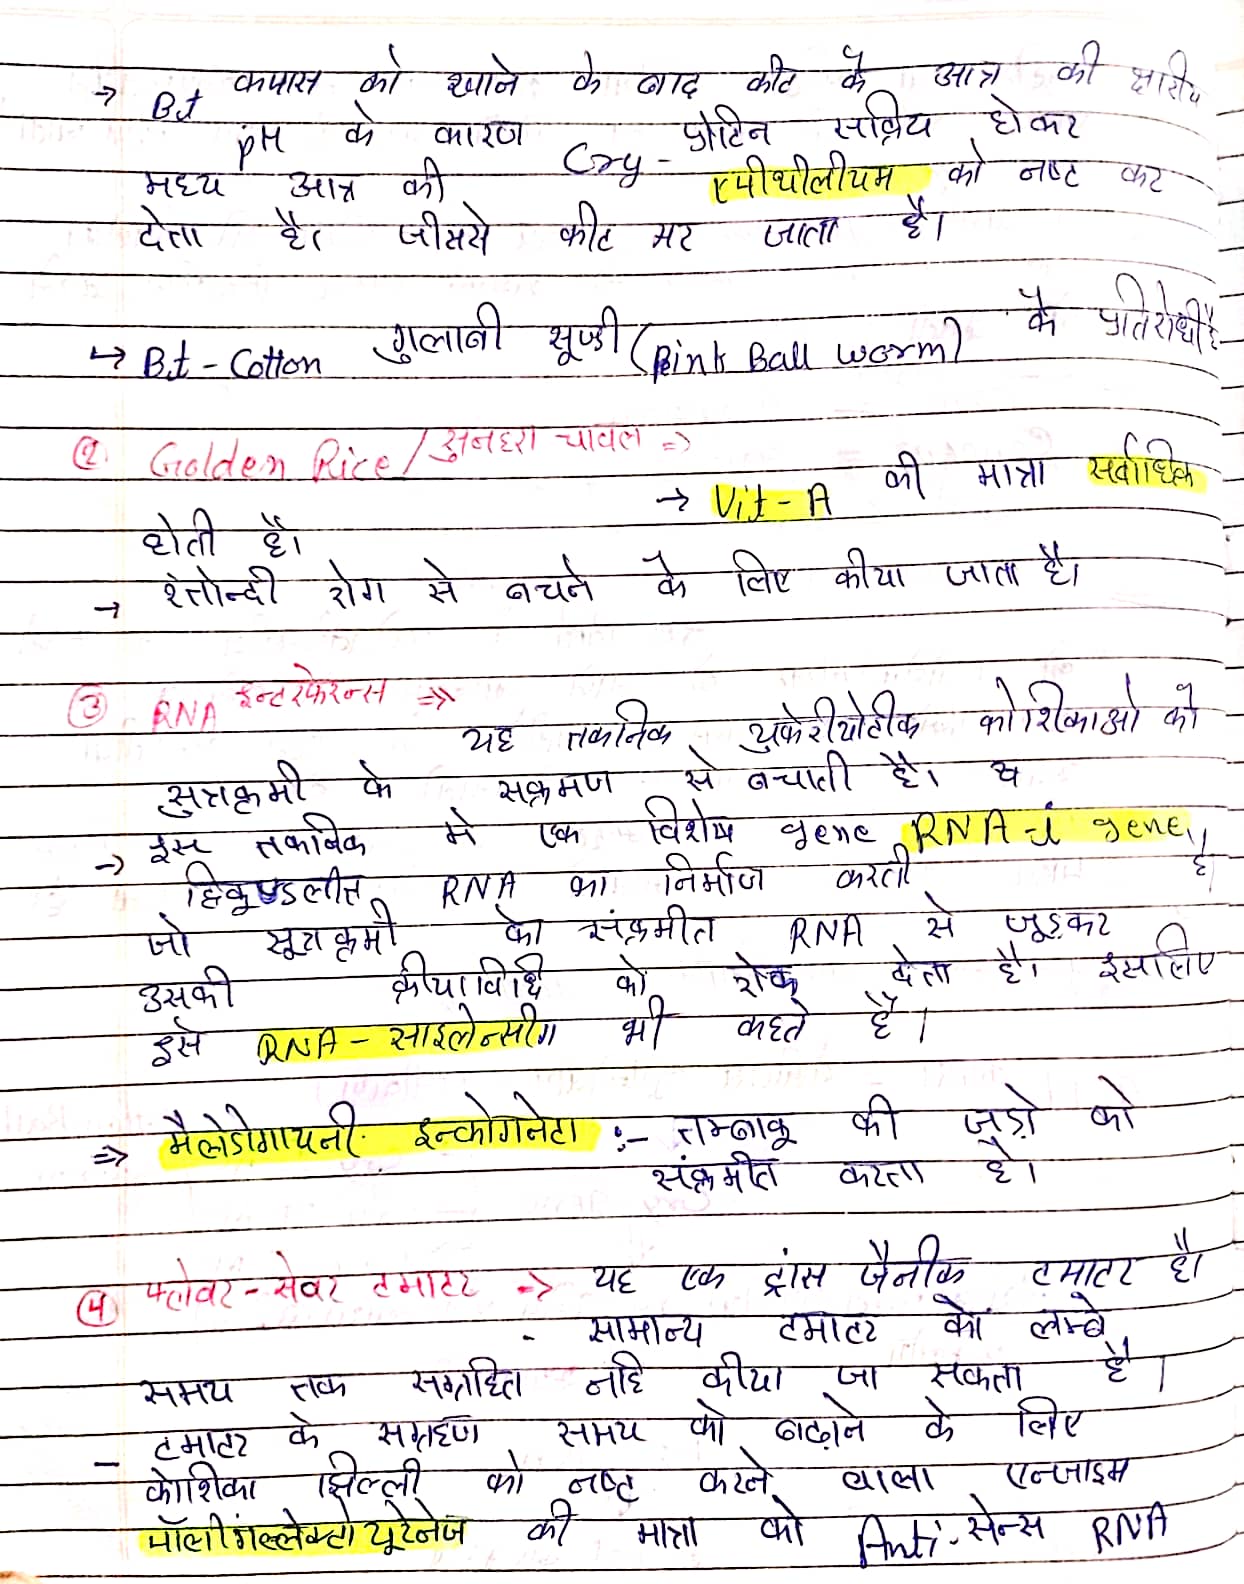 → Bt कपास को खाने के बाद कीट के आत्र की क्षारीय
pH के कारण Cry - प्रोटिन सक्रिय होकर
मध्य आत्र की एपीथीलीयम को नष्ट कर
देता है। जीससे कीट मर जाता है।
→ Bt - Cotton गुलाबी सूण्डी (Pink Ball worm) के प्रतिरोधी है
② Golden Rice / सुनहरा चावल ⇒
→ Vit - A की मात्रा सर्वाधिक
होती है।
→ रंतोन्दी रोग से बचने के लिए कीया जाता है।
③ RNA इन्टरफेरन्स ⇒
यह तकनिक युकेरीयोटीक कोशिकाओ को
सुत्रकृमी के सक्रमण से बचाती है। य
→ इस तकनिक मे एक विशेष gene RNA-i gene,
द्विकुण्डलीत RNA का निर्माण करती है
जो सूत्रकृमी के संक्रमीत RNA से जूड़कर
उसकी क्रीयाविधि को रोक देता है। इसलिए
इसे RNA - साइलेन्सीग भी कहते है।
⇒ मैलेडोगायनी इन्कोगनेटा :- तम्बाकू की जड़ो को
संक्रमीत करता है।
④ फ्लेवर - सेवर टमाटर → यह एक ट्रांस जैनीक टमाटर है।
- सामान्य टमाटर को लम्बे
समय तक सग्रहित नहि कीया जा सकता है।
- टमाटर के सग्रहण समय को बढ़ाने के लिए
कोशिका झिल्ली को नष्ट करने वाला एन्जाइम
पॉलीगंल्लेक्टो यूरेनेज की मात्रा को Anti - सेन्स RNA